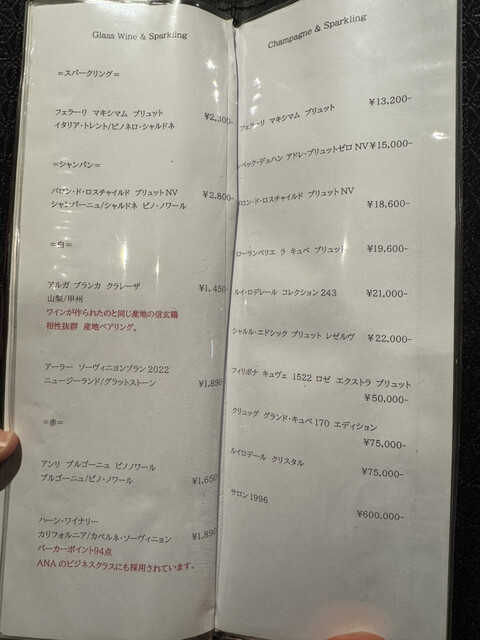 Glass Wine & Sparkling
=スパークリング=
フェラーリ マキシマム ブリュット
イタリア・トレント/ピノネロ・シャルドネ
¥2,300-
=シャンパン=
バロン・ド・ロスチャイルド ブリュットNV
シャンパーニュ/シャルドネ ピノ・ノワール
¥2,800-
=白=
アルガ ブランカ クラレーザ
山梨/甲州
¥1,450-
ワインが作られたのと同じ産地の信玄鶏
相性抜群 産地ペアリング。
アーラー ソーヴィニヨンブラン2022
ニュージーランド/グラットストーン
¥1,890
=赤=
アンリ ブルゴーニュ ピノノワール
ブルゴーニュ/ピノ・ノワール
¥1,650
ハーン・ワイナリー
カリフォルニア/カベルネ・ソーヴィニョン
¥1,890
パーカーポイント94点
ANAのビジネスクラスにも採用されています。
Champagne & Sparkling
フェラーリ マキシマム ブリュット
¥13,200-
ベック・デュハン アドレ・ブリュットゼロ NV ¥15,000-
ロン・ド・ロスチャイルド ブリュットNV
¥18,600-
ローランペリエ ラ キュベ ブリュット
¥19,600-
ルイ・ロデレール コレクション 243
¥21,000-
シャルル・エドシック ブリュット レゼルヴ
¥22,000-
フィリポナ キュヴェ 1522 ロゼ エクストラ ブリュット
¥50,000-
クリュッグ グランド・キュベ170 エディション
¥75,000-
ルイロデール クリスタル
¥75,000-
サロン 1996
¥600,000-